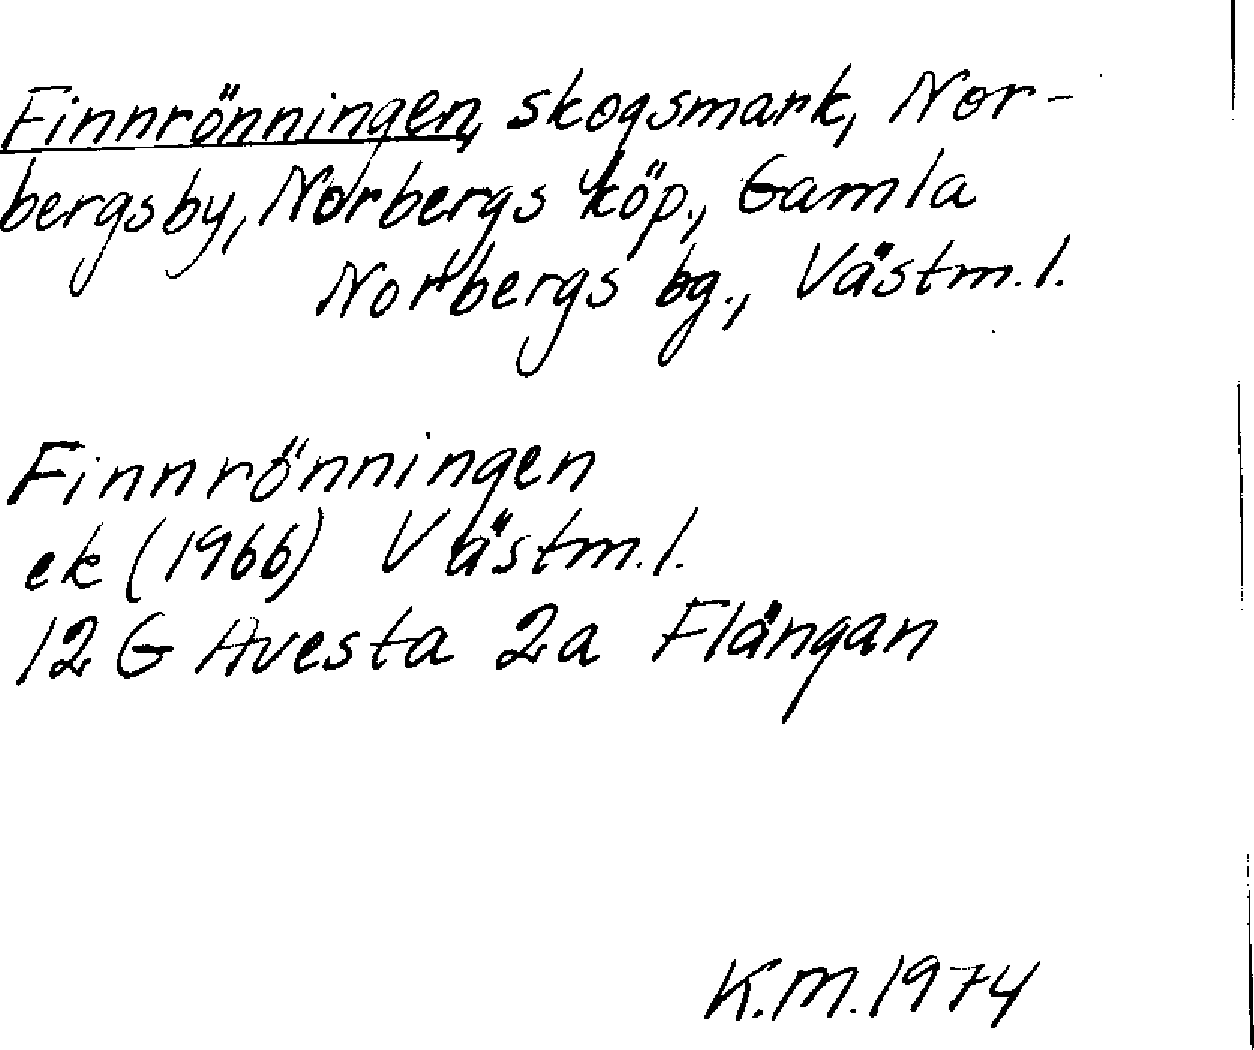 Finnrönningen, skogsmark, Nor-
bergsby, Norbergs köp., Gamla
Norbergs bg., Västm.l.
Finnrönningen
ek (1966) Västm.l.
12 G Avesta 2a Flängan
K.M. 1974